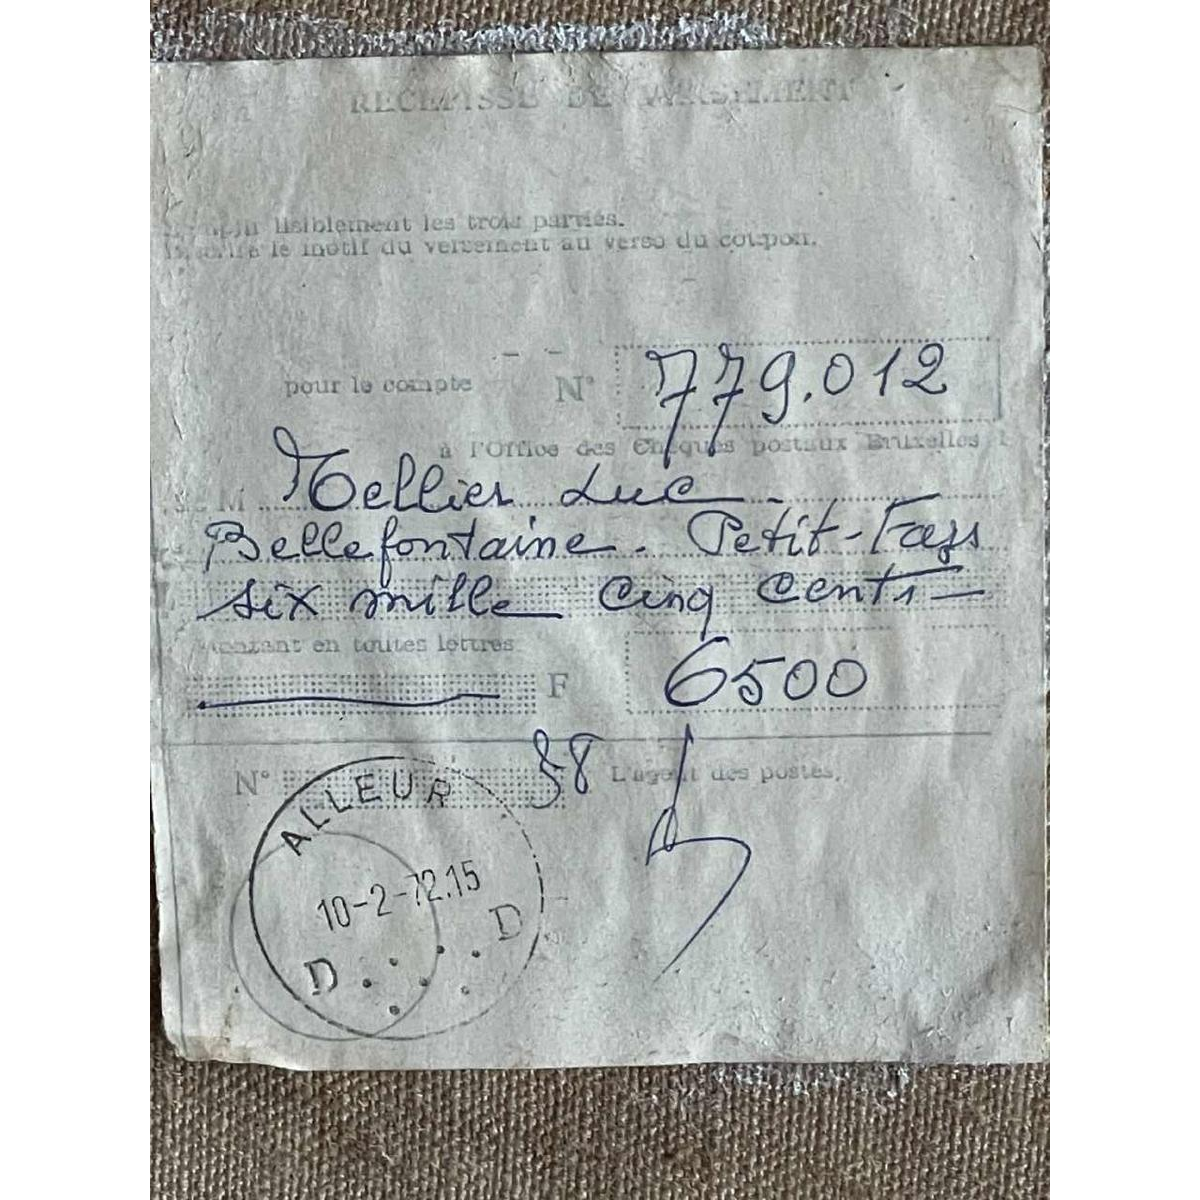 RECEPISSE DE VERSEMENT
lisiblement les trois parties.
le motif du versement au verso du coupon.
pour le compte N° 779.012
à l'Office des Chèques postaux Bruxelles 1
M Tellier Luc
Bellefontaine. Petit-Fays
six mille cinq cents
Montant en toutes lettres
F 6500
N° 58 L'agent des postes,
ALLEUR
10-2-72.15
D D